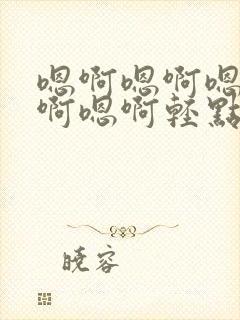 嗯啊嗯啊嗯
啊嗯啊轻點
晓容